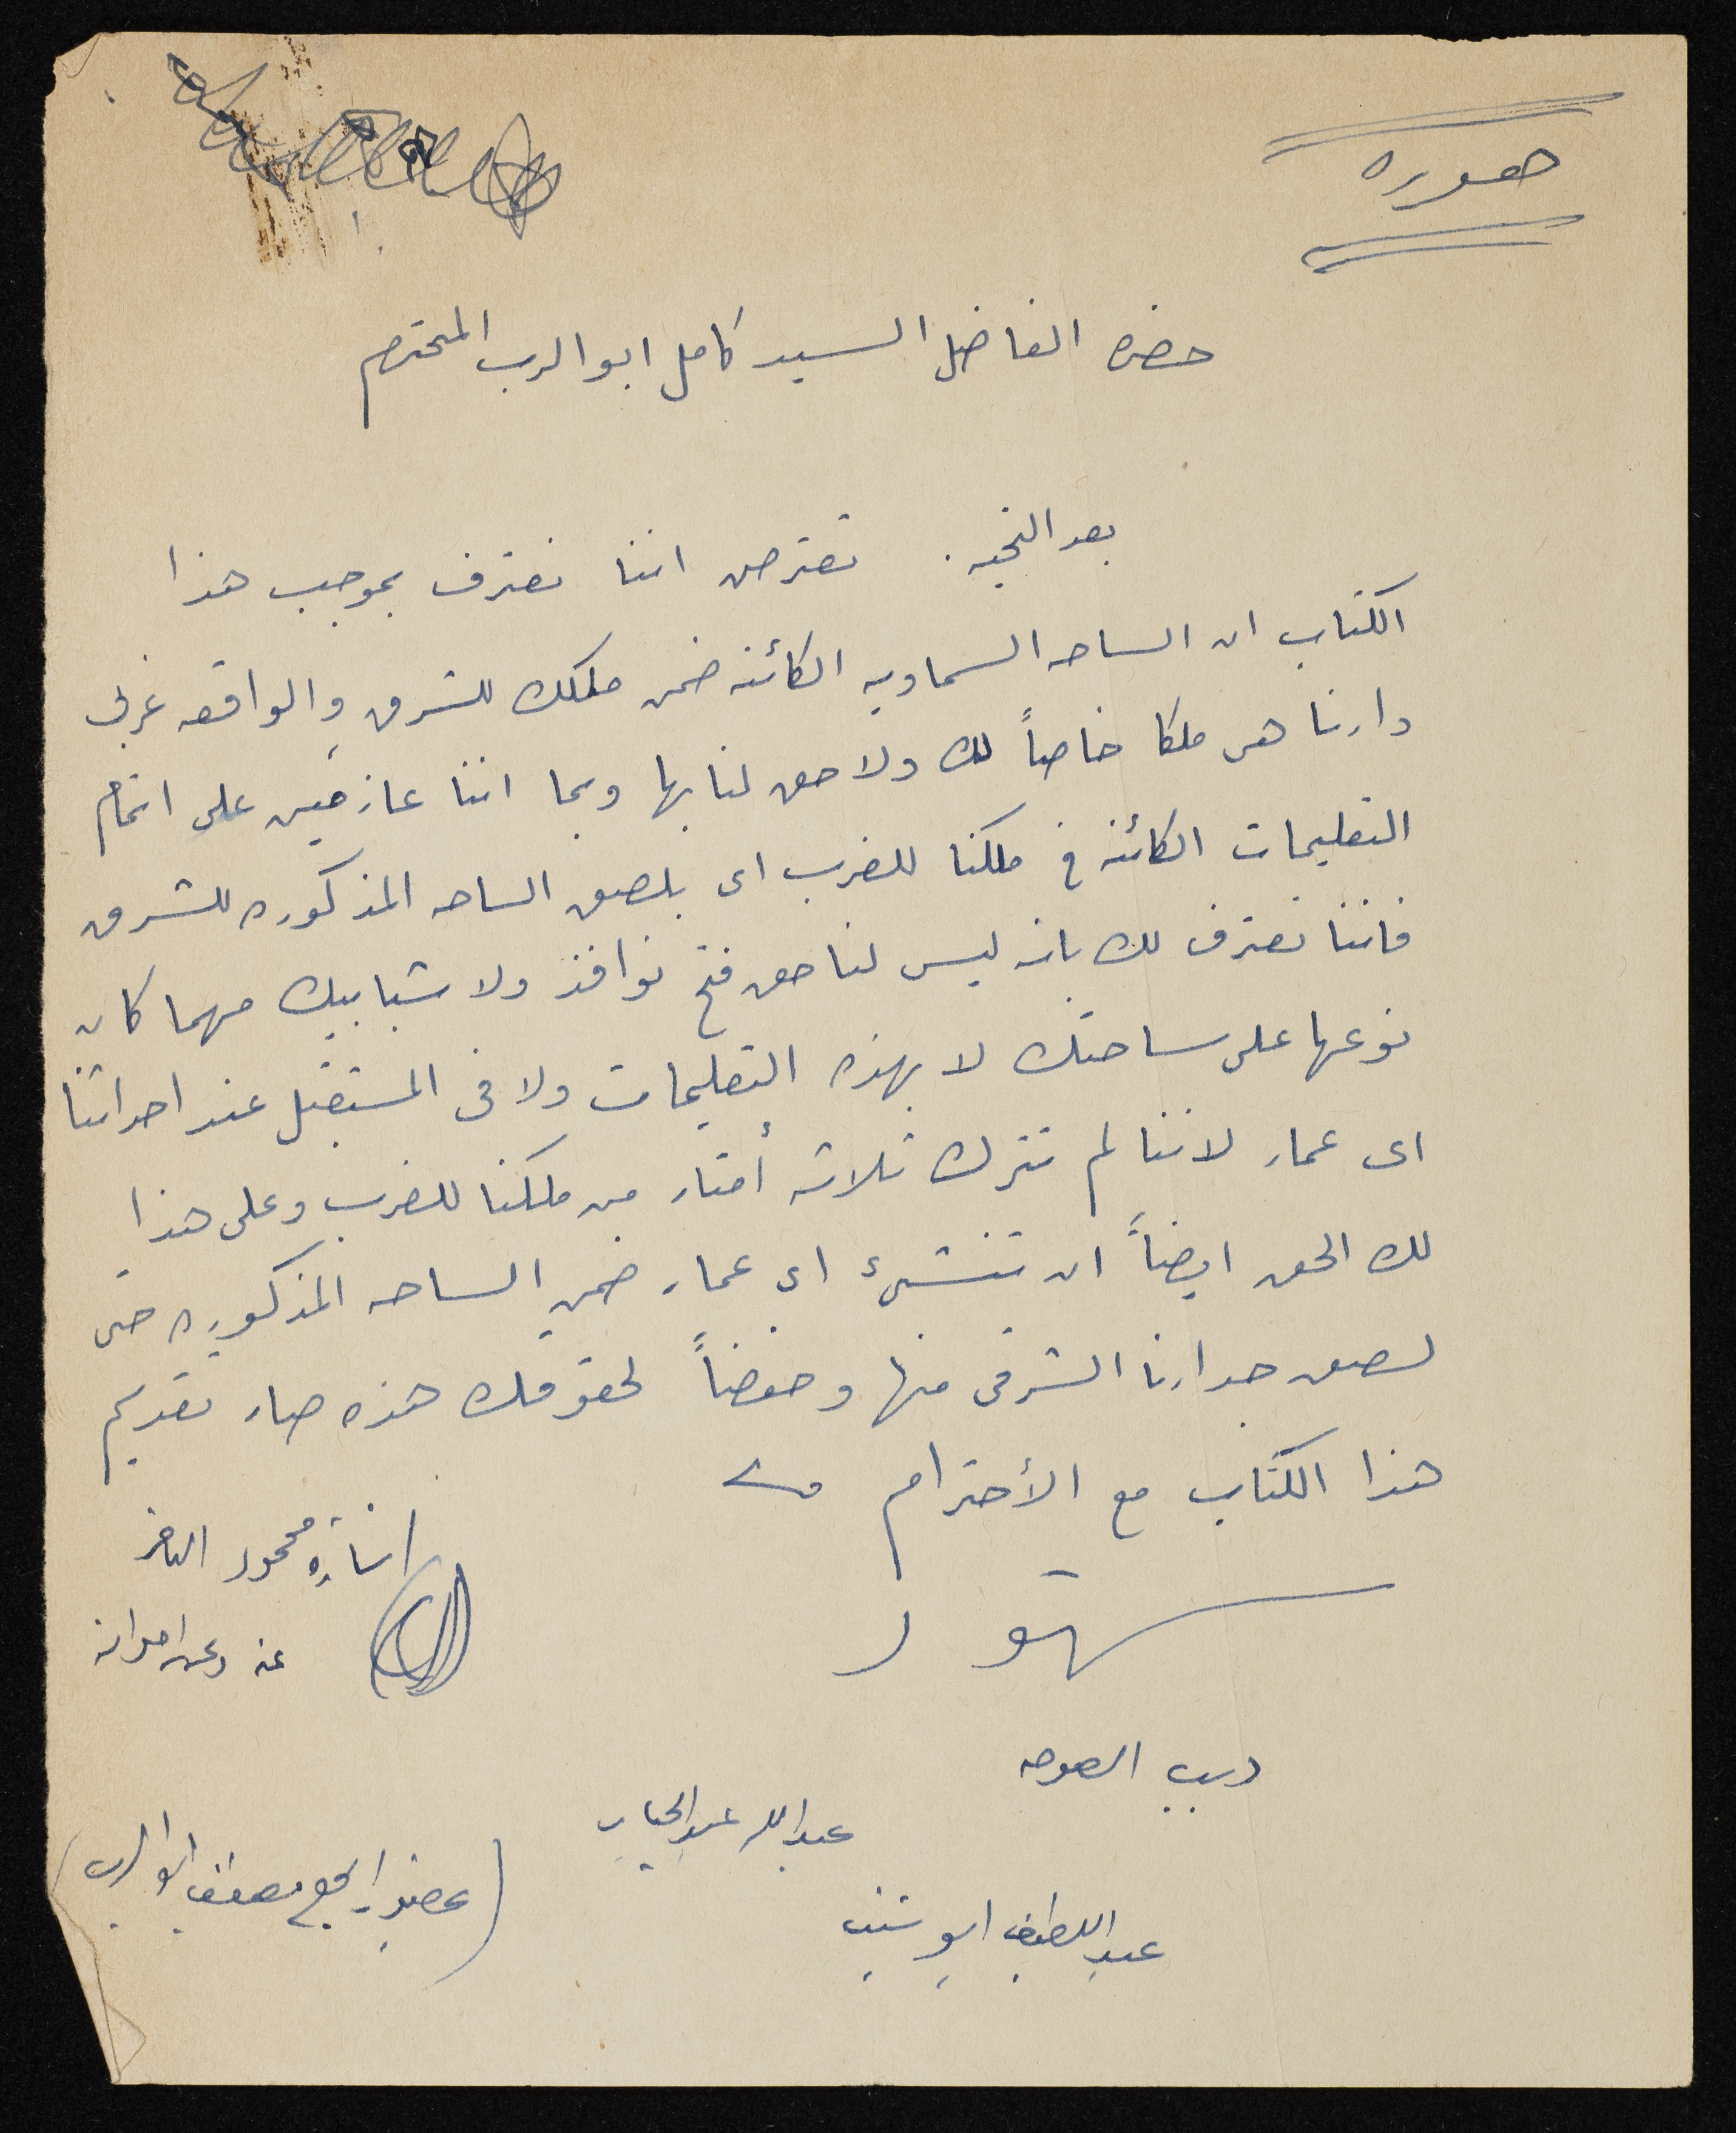 صوره
حضرة الفاضل السيد كامل ابو الرب المحترم
بعد التحيه . نعترض اننا نعترف بموجب هذا
الكتاب ان الساحه السماويه الكائنه ضمن ملكك للشرق والواقعه غربي
دارنا هى ملكا خاصاً لك ولا حق لنا بها وبما اننا عازمين على اتمام
التعليمات الكائنه في ملكنا للغرب اى بلصق الساحه المذكوره للشرق
فاننا نعترف لك بانه ليس لنا حق فتح نوافذ ولا شبابيك مهما كان
نوعها على ساحتك لا بهذه التعليمات ولا فى المستقبل عند احداثنا
اى عمار لاننا لم نترك ثلاثه أمتار من ملكنا للغرب وعلى هذا
لك الحق ايضاً ان تنشىء اى عمار ضمن الساحه المذكوره حتى
لصق جدارنا الشرقى منها وحفضاً لحقوقك هذه صار تقديم
هذا الكتاب مع الأحترام
محمود
عنه وعن اخوانه
شهود
ديب
عبد الله عبد الجبار
عبد اللطيف ابو شنب
ابو الرب